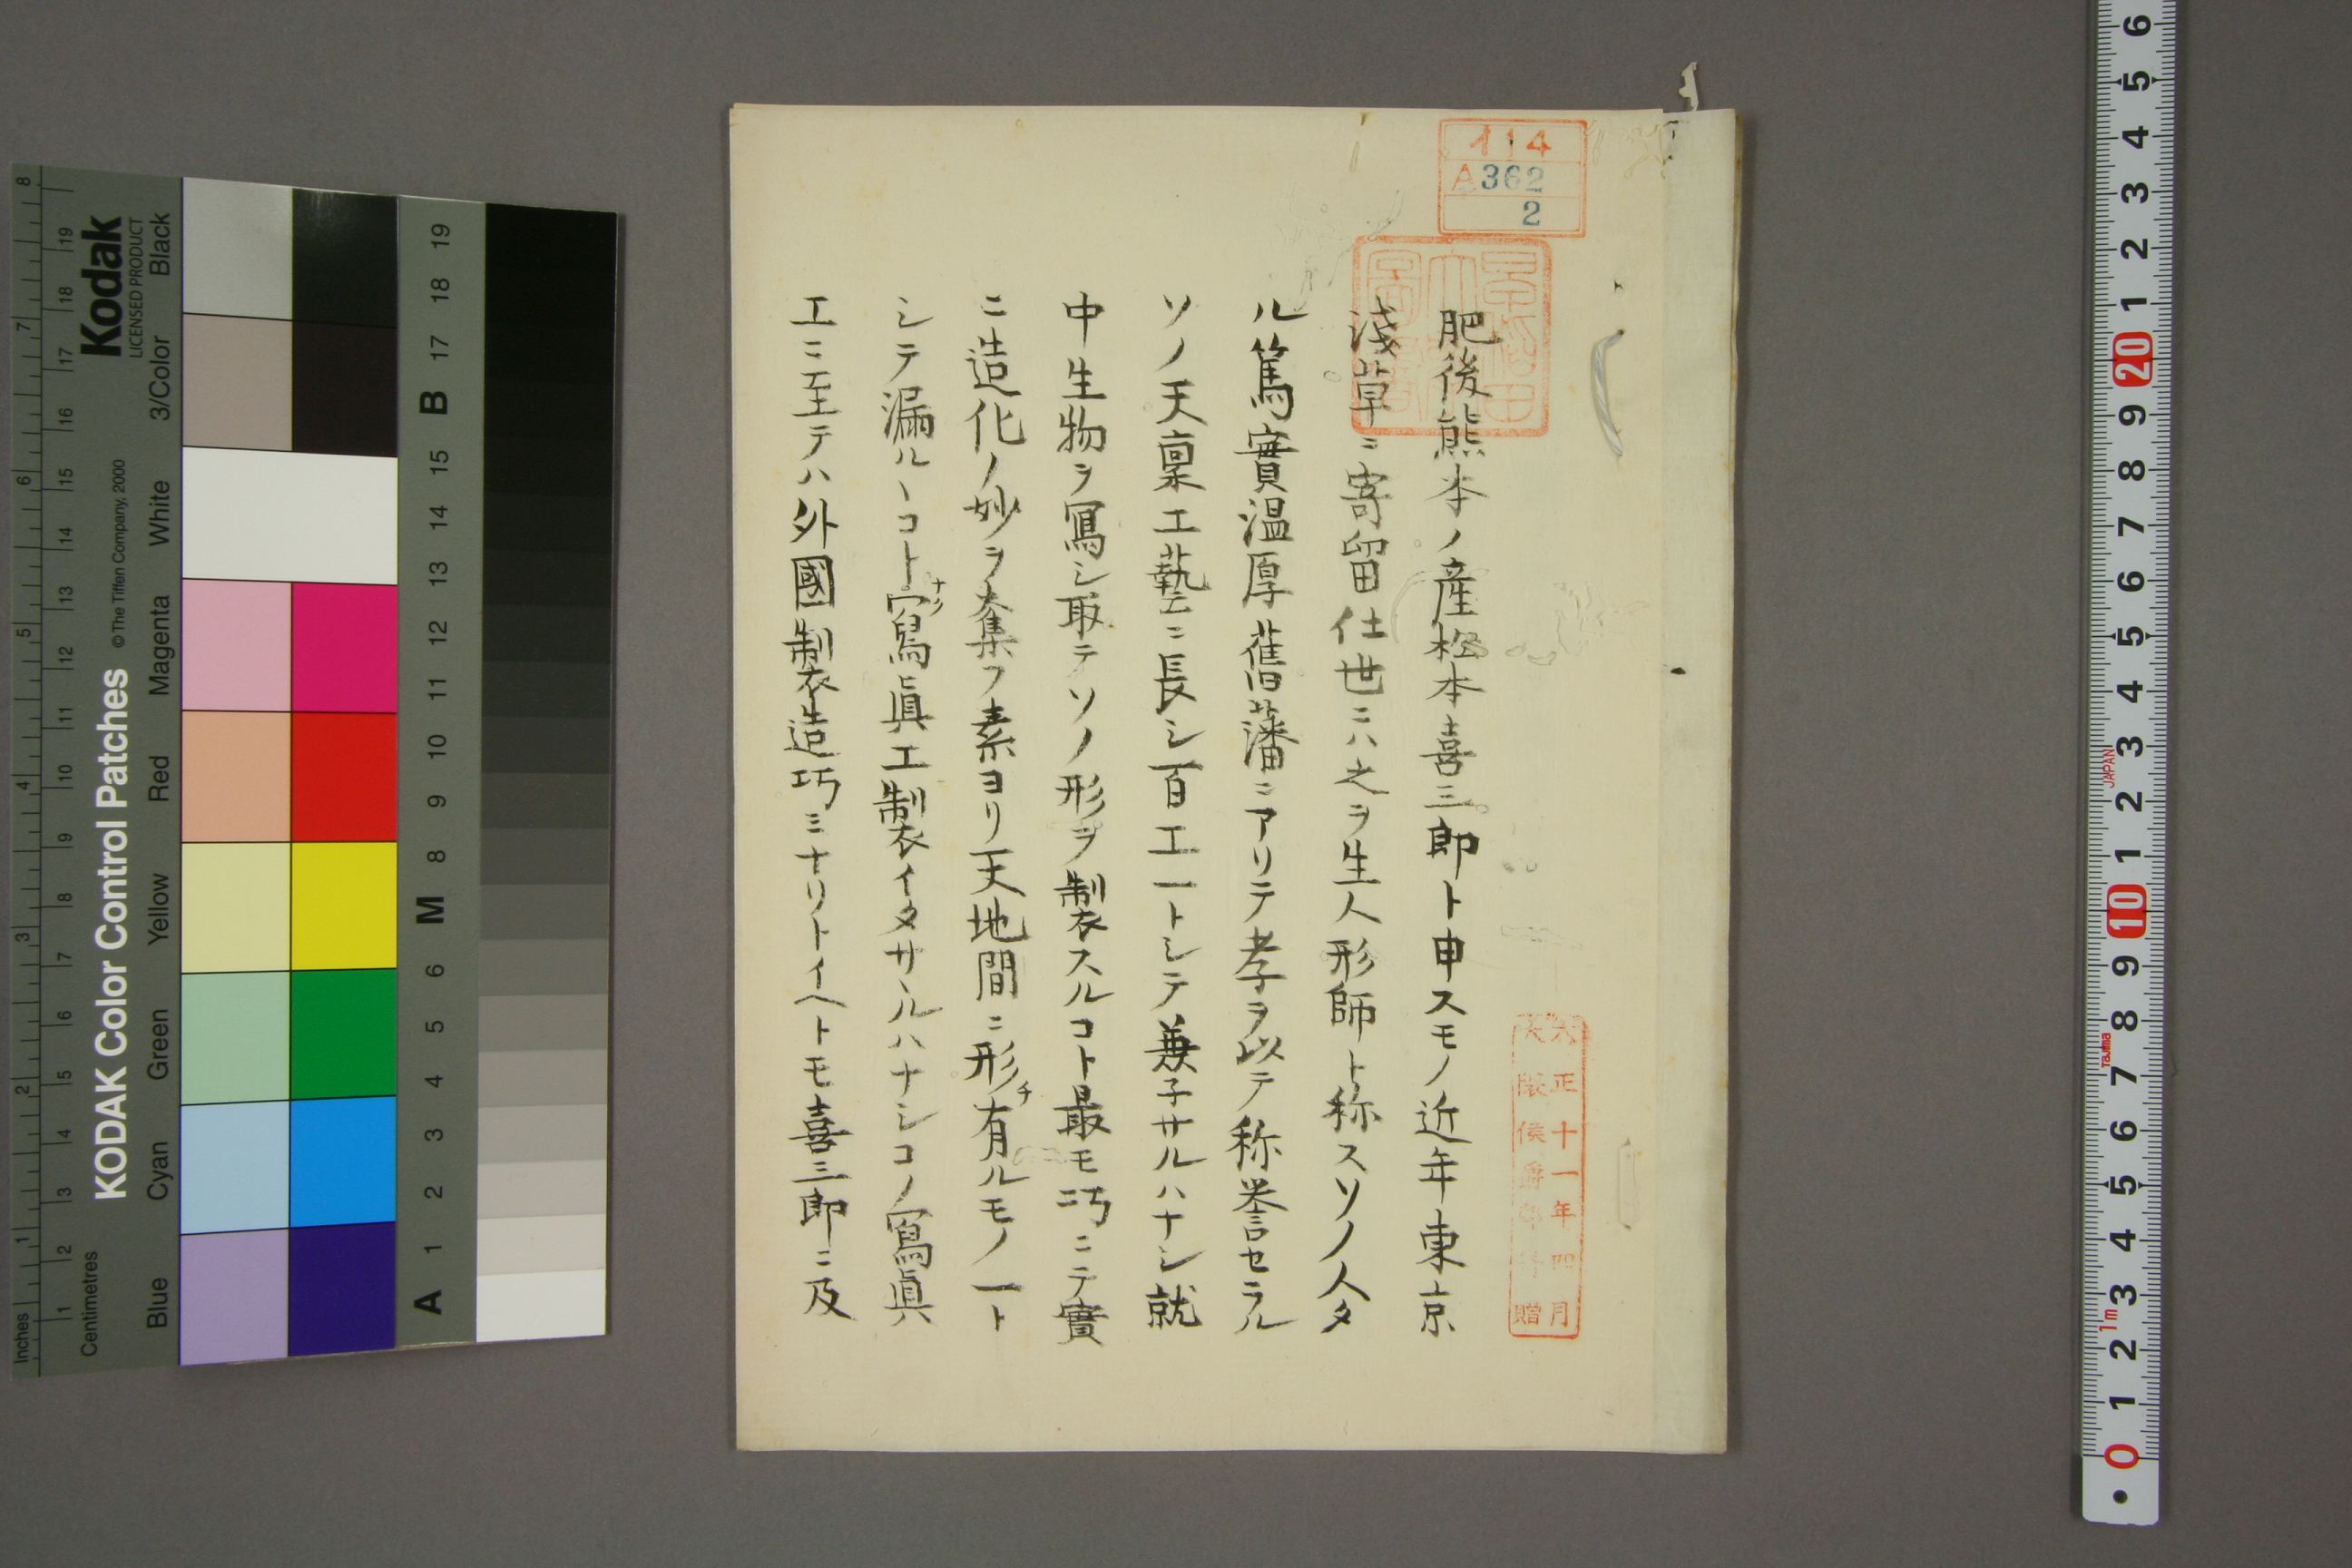 肥後熊本ノ産松本喜三郎ト申スモノ近年東京
淺草ニ寄留仕世ニハ之ヲ生人形師ト称スソノ人タ
ル篤實温厚舊藩ニアリテ孝ヲ以テ称誉セラル
ソノ天稟工藝ニ長シ百工一トシテ兼子サルハナシ就
中生物ヲ寫シ取テソノ形ヲ製スルコト最モ巧ニテ實
ニ造化ノ妙ヲ奪フ素ヨリ天地間ニ形チ有ルモノ一ト
シテ漏ルヽコトナク寫眞工製イタサヽルハナシコノ寫眞
工ニ至テハ外國製造巧ミナリトイヘトモ喜三郎ニ及
114
A362
2
大正十一年四月
大隈侯爵郷寄贈
KODAK Color Control Patches
© The Tiffen Company, 2000
Kodak
LICENSED PRODUCT
Inches
1 2 3 4 5 6 7 8
Centimetres
1 2 3 4 5 6 7 8 9 10 11 12 13 14 15 16 17 18 19
Blue Cyan Green Yellow Red Magenta White 3/Color Black
A 1 2 3 4 5 6 M 8 9 10 11 12 13 14 15 B 17 18 19
0 1 2 3 4 5 6 7 8 9 10 1 2 3 4 5 6 7 8 9 20 1 2 3 4 5 6
1m
Tajima
JAPAN